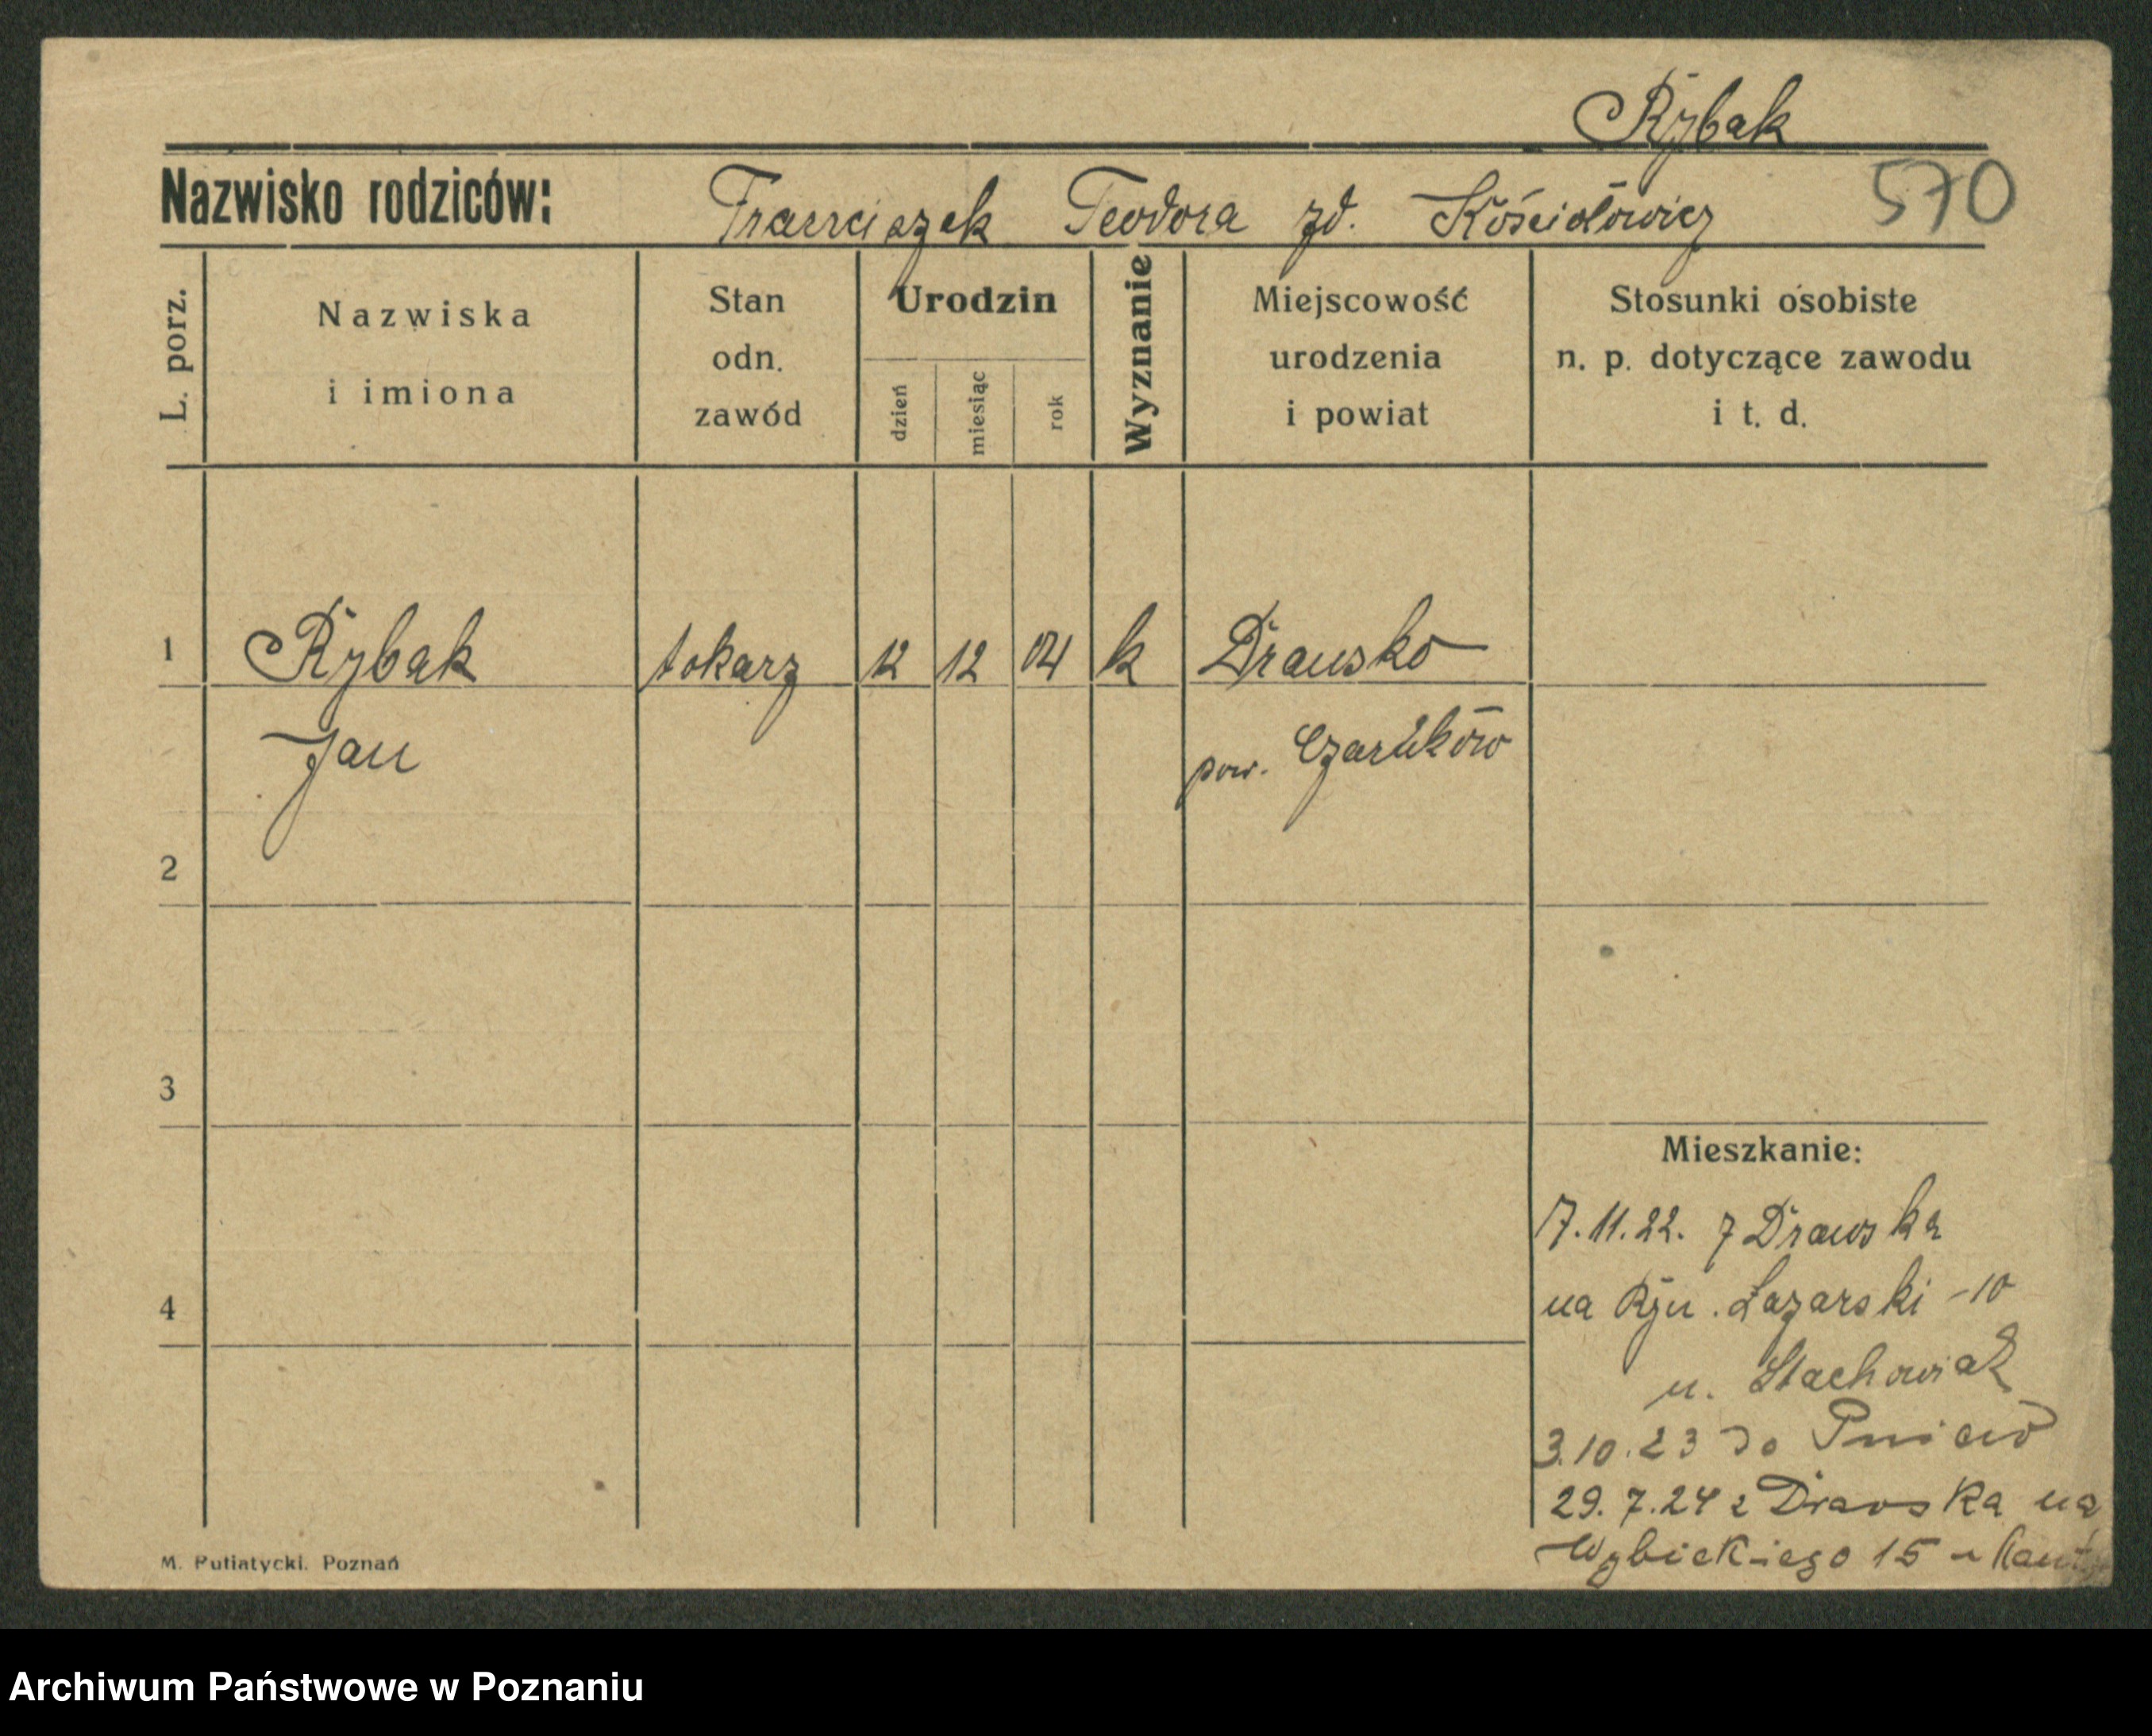 Rybak
Nazwisko rodziców: Franciszek Teodora zd. Kościołowicz 570
L. porz.
Nazwiska
i imiona
Stan
odn.
zawód
Urodzin
dzień
miesiąc
rok
Wyznanie
Miejscowość
urodzenia
i powiat
Stosunki osobiste
n. p. dotyczące zawodu
i t. d.
1 Rybak tokarz 12 12 04 k Drawsko
Jan pow. Czarnków
2
3
Mieszkanie:
17.11.22. z Drawska
4
na Ryn. Łazarski - 10
u. Stachowiak
3.10.23 do Pniew
29.7.24 z Drawska na
Wybickiego 15 u
M. Putiatycki. Poznań
Archiwum Państwowe w Poznaniu